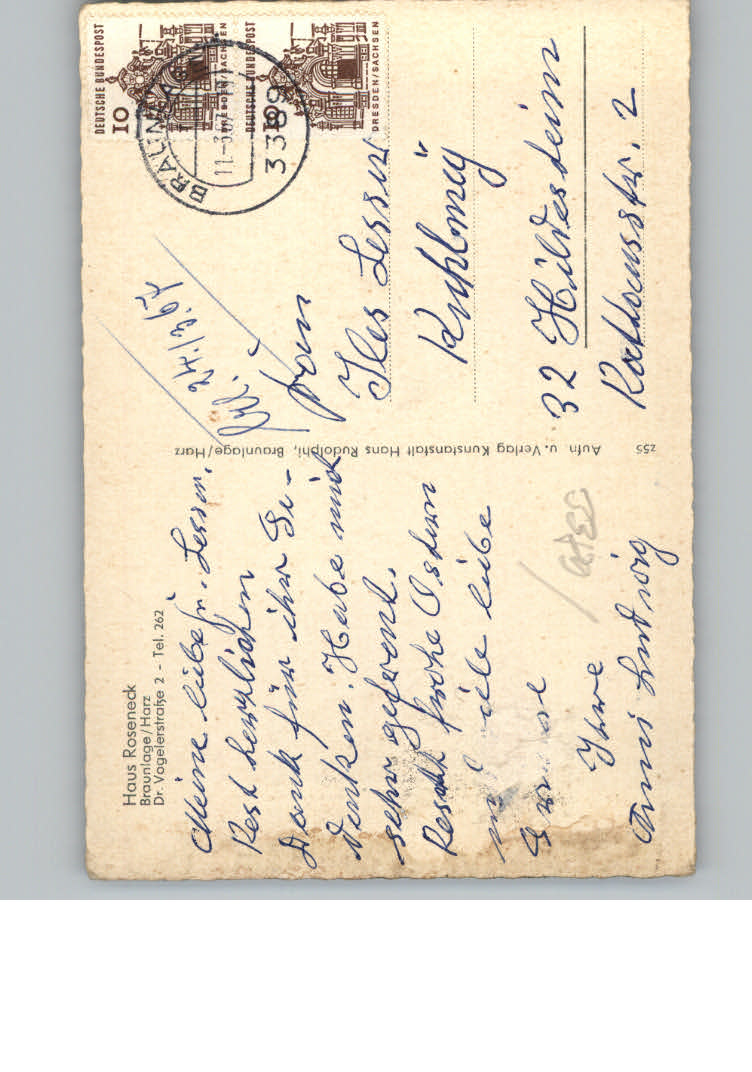 Haus Roseneck
Braunlage/Harz
Dr. Vogelerstraße 2 - Tel. 262
Meine liebe Fr. Lesser.
Rest herzlichen
Dank für ihr Ge-
denken. Habe mich
sehr gefreut.
Recht frohe Ostern
und viele liebe
Grüsse
Ihre
Anni Ludwig
Aufn. u. Verlag Kunstanstalt Hans Rudolphi, Braunlage/Harz
z55
DEUTSCHE BUNDESPOST
10
DRESDEN/SACHSEN
DEUTSCHE BUNDESPOST
10
DRESDEN/SACHSEN
BRAUNLA
3389
24./3.67
Frau
Ilse Lesser
32 Hildesheim
Rathausstr. 2